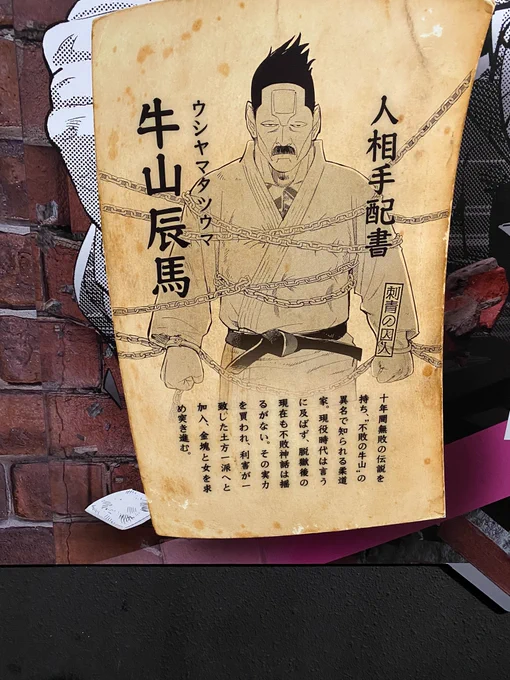 人相手配書
刺青の囚人
ウシヤマタツウマ
牛山辰馬
十年間無敗の伝説を
持ち、“不敗の牛山”の
異名で知られる柔道
家。現役時代は言う
に及ばず、脱獄後の
現在も不敗神話は揺
るがない。その実力
を買われ、利害が一
致した土方一派へと
加入、金塊と女を求
め突き進む。